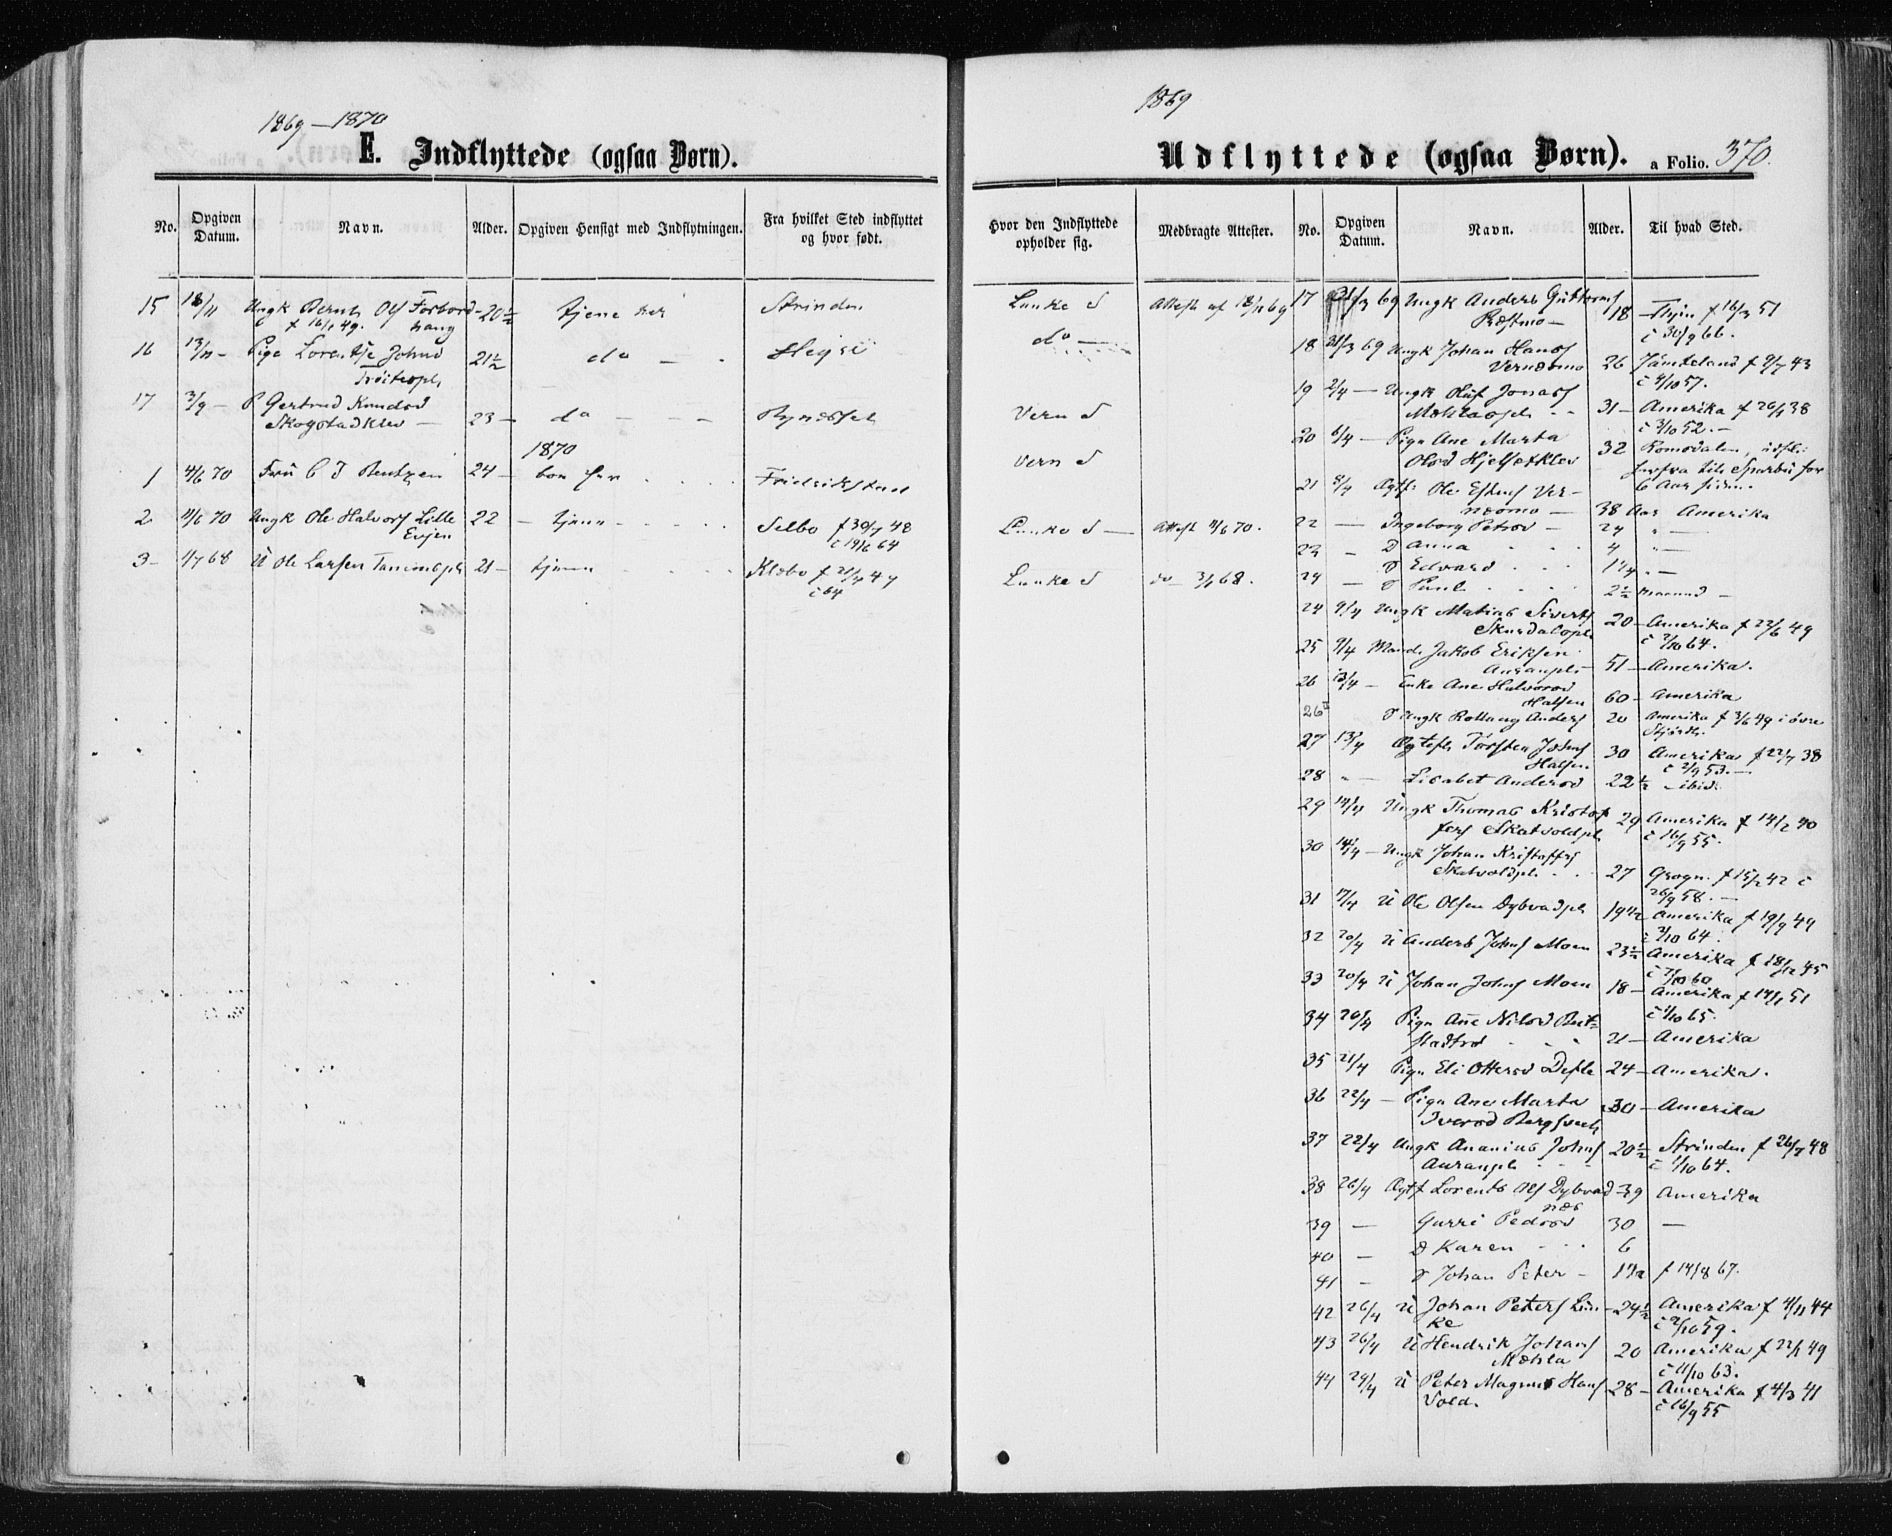 1869 — 1870
E. Indflyttede (ogsaa Børn).
No.
Opgiven Datum.
Navn.
Alder.
Opgiven Hensigt med Indflytningen.
Fra hvilket Sted indflyttet og hvor født.
15 18/11 Ungk Bernh Olf Forbord- 20½ tjene her Strinden
f 16/1 49. hang
16 13/11 - Pige Lorentse Johnsd 21½ do — - Hegre
17 3/9 - P Gertrud Knudsd
Skogstadklev — 23 — do — — — Bynæsset
1870
1 4/6 70 Fru C I Bentzen 24 — boe her Fredrikstad
2 11/6 70 Ungk Ole Halvors Lille 22 — tjene Selbo f 30/7 48
Evjen c 19/6 64
3 - 4/7 68 U Ole Larsen Tanemspl 21 — tjene Klæbo f 21/4 47
c 64
1869
Udflyttede (ogsaa Børn).
a Folio. 370.
Hvor den Indflyttede opholder sig.
Medbragte Attester.
No.
Opgiven Datum.
Navn.
Alder.
Til hvad Sted.
Lunke S Attest af 18/11 69
do —
Vern S
Vern S
Lunke S — Attest 11/6 70.
Lunke S do — 3/7 68.
17 21/3 69 Ungk Anders Guttorms
Præstmo — 18 — Thjin f 16/3 51
c 30/9 66.
18 21/3 69 Ungk Johan Hans
Vernæsmo 26 Jämteland f 9/7 43
c 4/10 57.
19 2/4 — Ungk Oluf Jonas
Mæhlaspl 31 — Amerika f 26/1 38
c 3/10 52. —
20 6/4 — Pige Ane Marta
Olsd Hjelsetklev 32 Romsdalen, udfl.
herfra til Sparbu for
6 Aar siden.
21 8/4 Ægtf. Ole Estens Ver-
næsmo — 38 Aar Amerika
22 — Ingeborg Petersd — 24 " —
23 — D Anna 4 " —
S Edvard 1¼ " —
24 — S Paul 2½ Maaned —
24 9/4 Ungk Matias Siverts
Skurdalspl 20 — Amerika f 22/6 49
c 2/10 64.
25 9/4 Mand. Jakob Eriksen
Auranpl — 51 — Amerika.
26 13/4 — Enke Ane Halvorsd
Halsen 60 — Amerika
26 S Ungk Anders 20 Amerika f 3/6 49 i övre
Stjørd.
27 13/4 Ægtefl Torsten Johns
Halsen 30 Amerika f 22/7 38
c 2/9 53. —
28 " — Lisabet Andersd 22½ — ibid.
29 14/4 Ungk Thomas Kristof
fers Skatvoldpl 29 Amerika f 14/2 40
c 16/9 55.
30 14/4 — Ungk Johan Kristoffers
Skatvoldpl. 27 f 15/2 42 c
26/9 58. —
31 17/4 U Ole Olsen Dybvadpl 19½ Amerika f 19/9 49
c 2/10 64.
32 20/4 U Anders Johns Moen 23½ Amerika f 18/12 45
c 7/10 60
33 20/4 U Johan Johns Moen 18 — Amerika f 14/1 51
c 1/10 65.
34 20/4 Pige Ane Nilsd Rut-
stadtrø 21 — Amerika
35 21/4 Pige Eli Ottersd Defle 24 — Amerika.
36 22/4 — Pige Ane Marta
Iversd 30 — Amerika
37 22/4 Ungk Ananias Johns 20½ Strinden f 26/7 48
Auranpl c 1/10 64.
38 26/4 Ægtf Lorents Olf Dybvad 39 Amerika
næs
39 — Gurri Pedersd 30 —
40 — D Karen 6
41 — S Johan Peter — 1½ f 14/8 67.
42 26/4 U Johan Peters Lun- 24½ Amerika f 4/11 44
ke c 2/10 59.
43 26/4 U Hendrik Johans
Mæhla 20 Amerika f 22/1 49
c 11/10 63.
44 29/4 U Peter Magnus Hans 28 — Amerika f 4/3 41
Vold. c 16/9 55